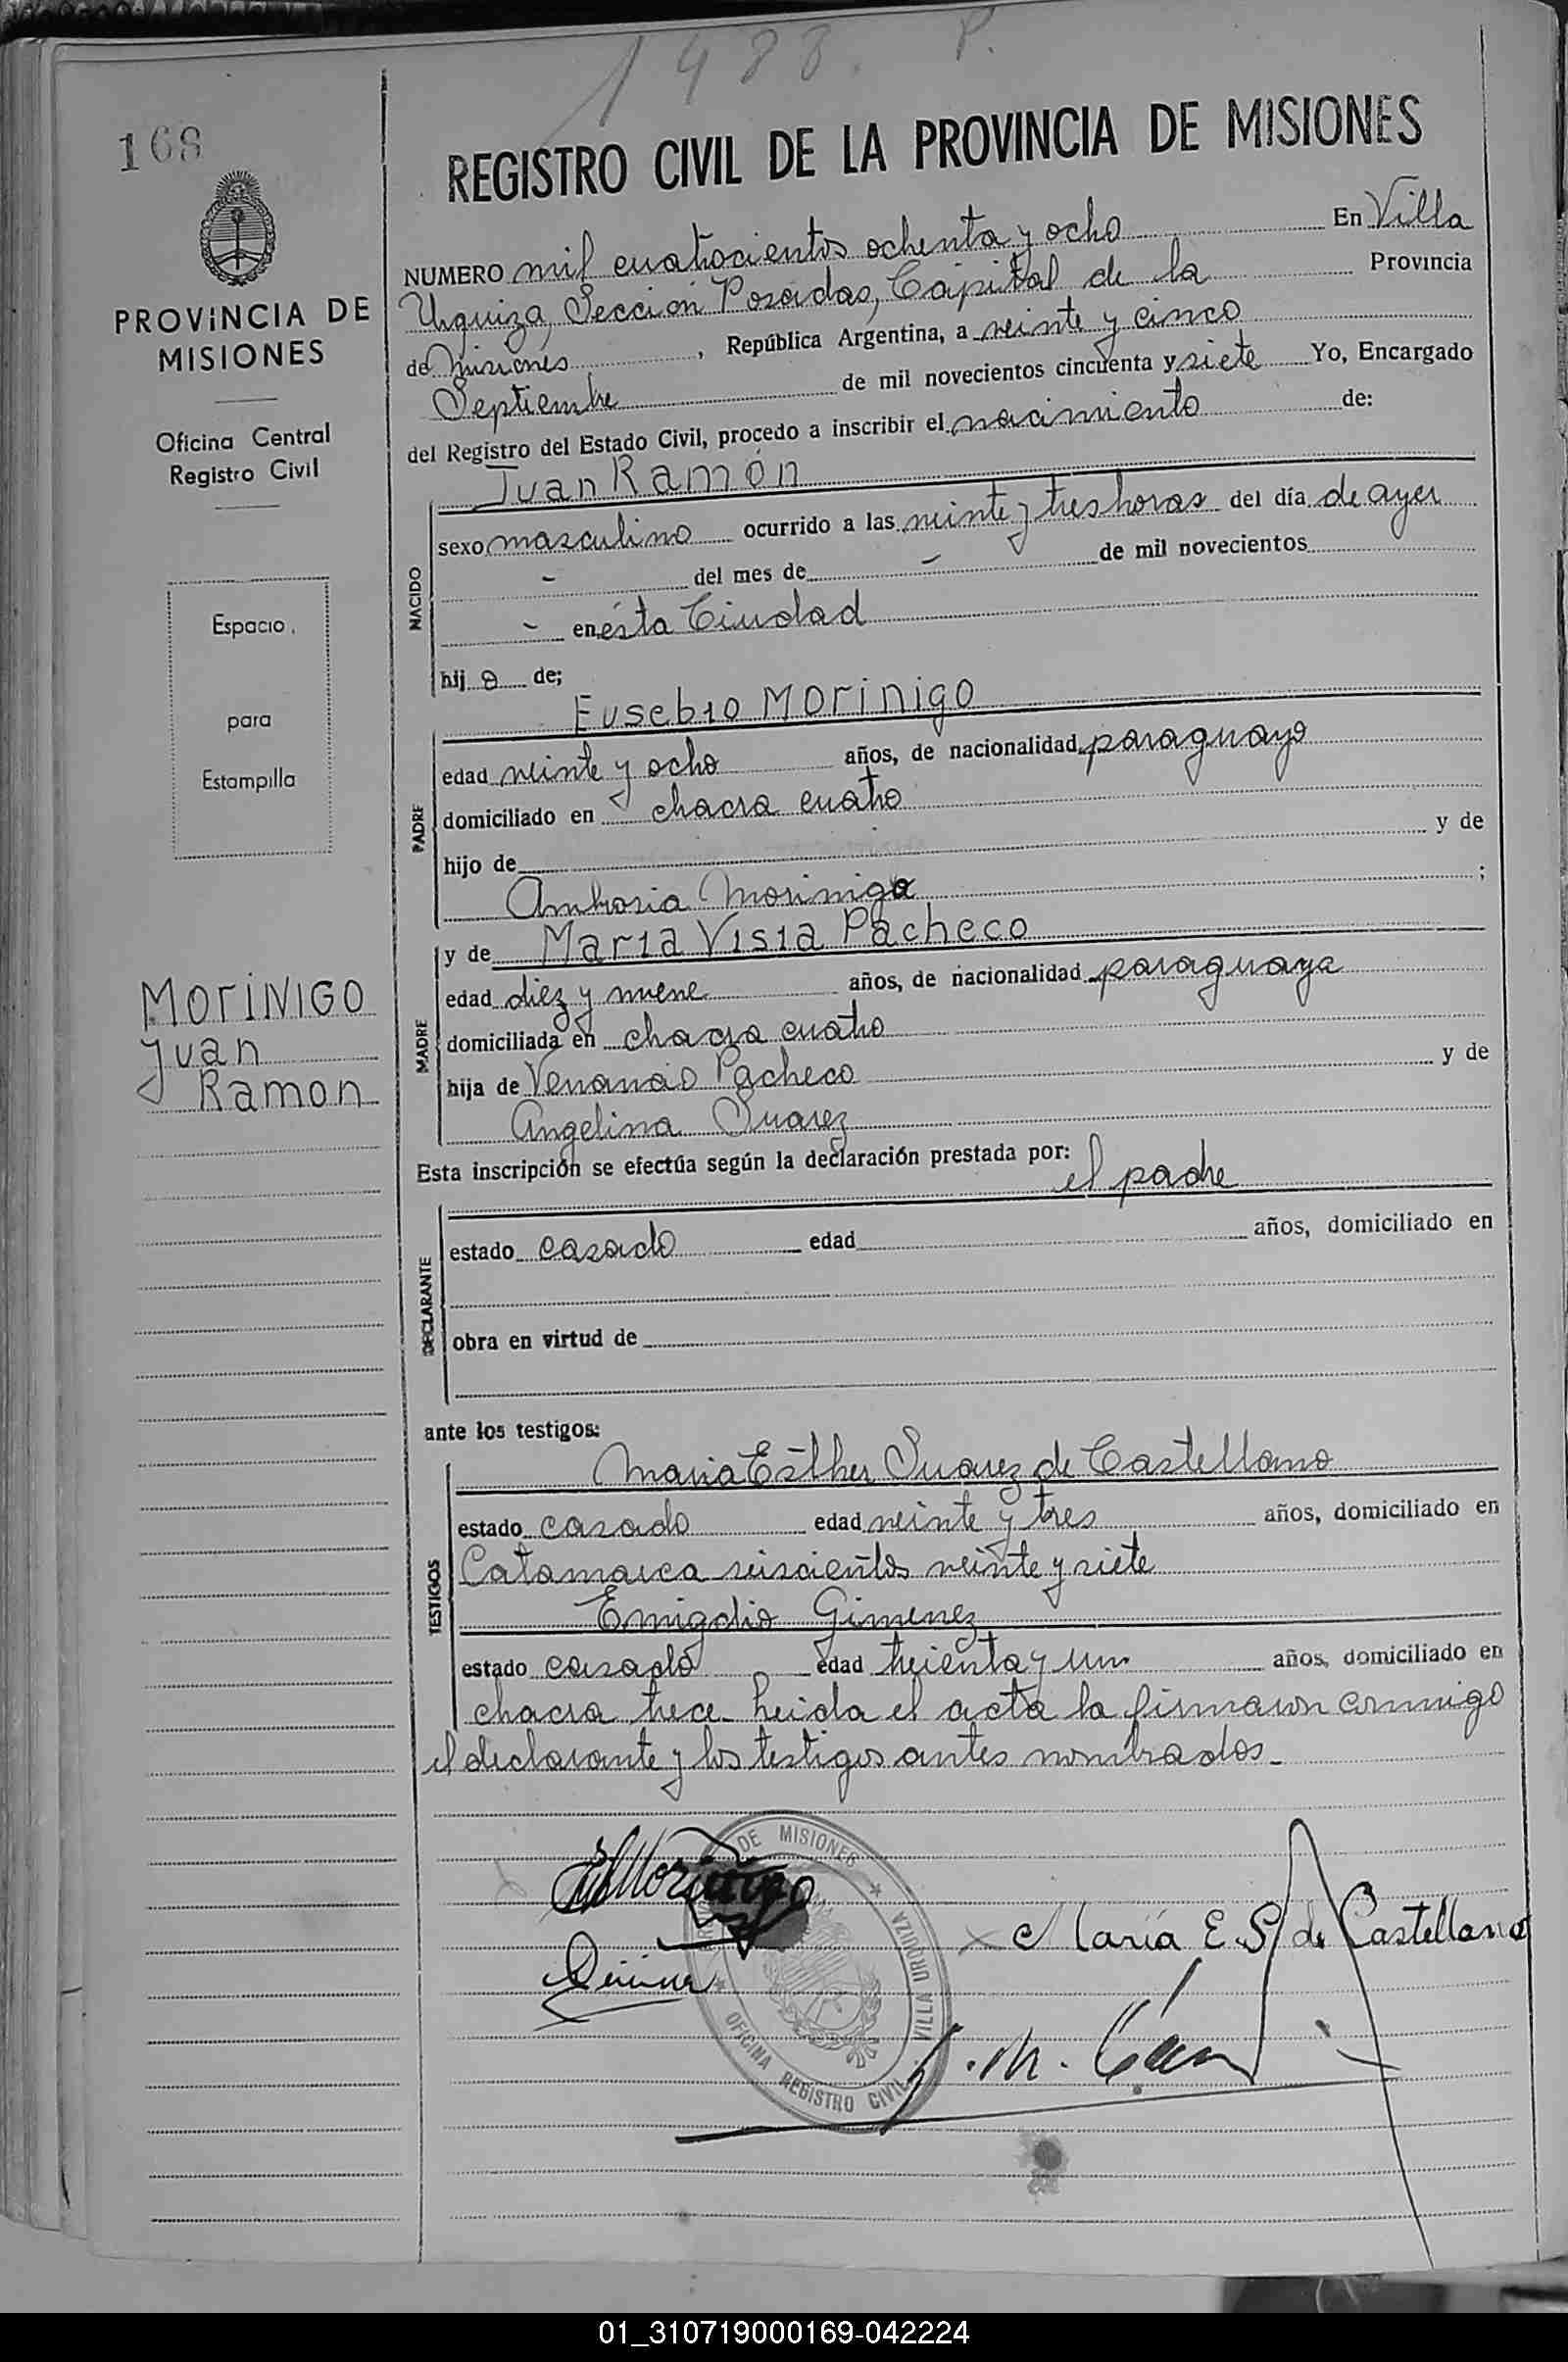 1488. P.
168
REGISTRO CIVIL DE LA PROVINCIA DE MISIONES
PROVINCIA DE
MISIONES
Oficina Central
Registro Civil
Espacio
para
Estampilla
MORINIGO
Juan
Ramon
NUMERO mil cuatrocientos ochenta y ocho En Villa
Urquiza, Sección Posadas, Capital de la Provincia
de Misiones, República Argentina, a veinte y cinco
Septiembre de mil novecientos cincuenta y siete Yo, Encargado
del Registro del Estado Civil, procedo a inscribir el nacimiento de:
Juan Ramón
NACIDO
sexo masculino ocurrido a las veinte y tres horas del día de ayer
- del mes de - de mil novecientos
- en ésta Ciudad
hij o de;
Eusebio Morinigo
PADRE
edad veinte y ocho años, de nacionalidad paraguayo
domiciliado en chacra cuatro
hijo de y de
Ambrosia Morinigo ;
y de Maria Visia Pacheco
MADRE
edad diez y nueve años, de nacionalidad paraguaya
domiciliada en chacra cuatro
hija de Venancio Pacheco y de
Angelina Suarez
Esta inscripción se efectúa según la declaración prestada por:
el padre
DECLARANTE
estado casado edad años, domiciliado en
obra en virtud de
ante los testigos:
Maria Esther Suarez de Castellano
TESTIGOS
estado casado edad veinte y tres años, domiciliado en
Catamarca seiscientos veinte y siete
Emigdio Gimenez
estado casado edad treienta y un años, domiciliado en
chacra trece. Leida el acta la firmaron conmigo
el declarante y los testigos antes nombrados.-
E Morinigo
María E. S. de Castellano
DE MISIONES * VILLA URQUIZA * OFICINA REGISTRO CIVIL
01_310719000169-042224